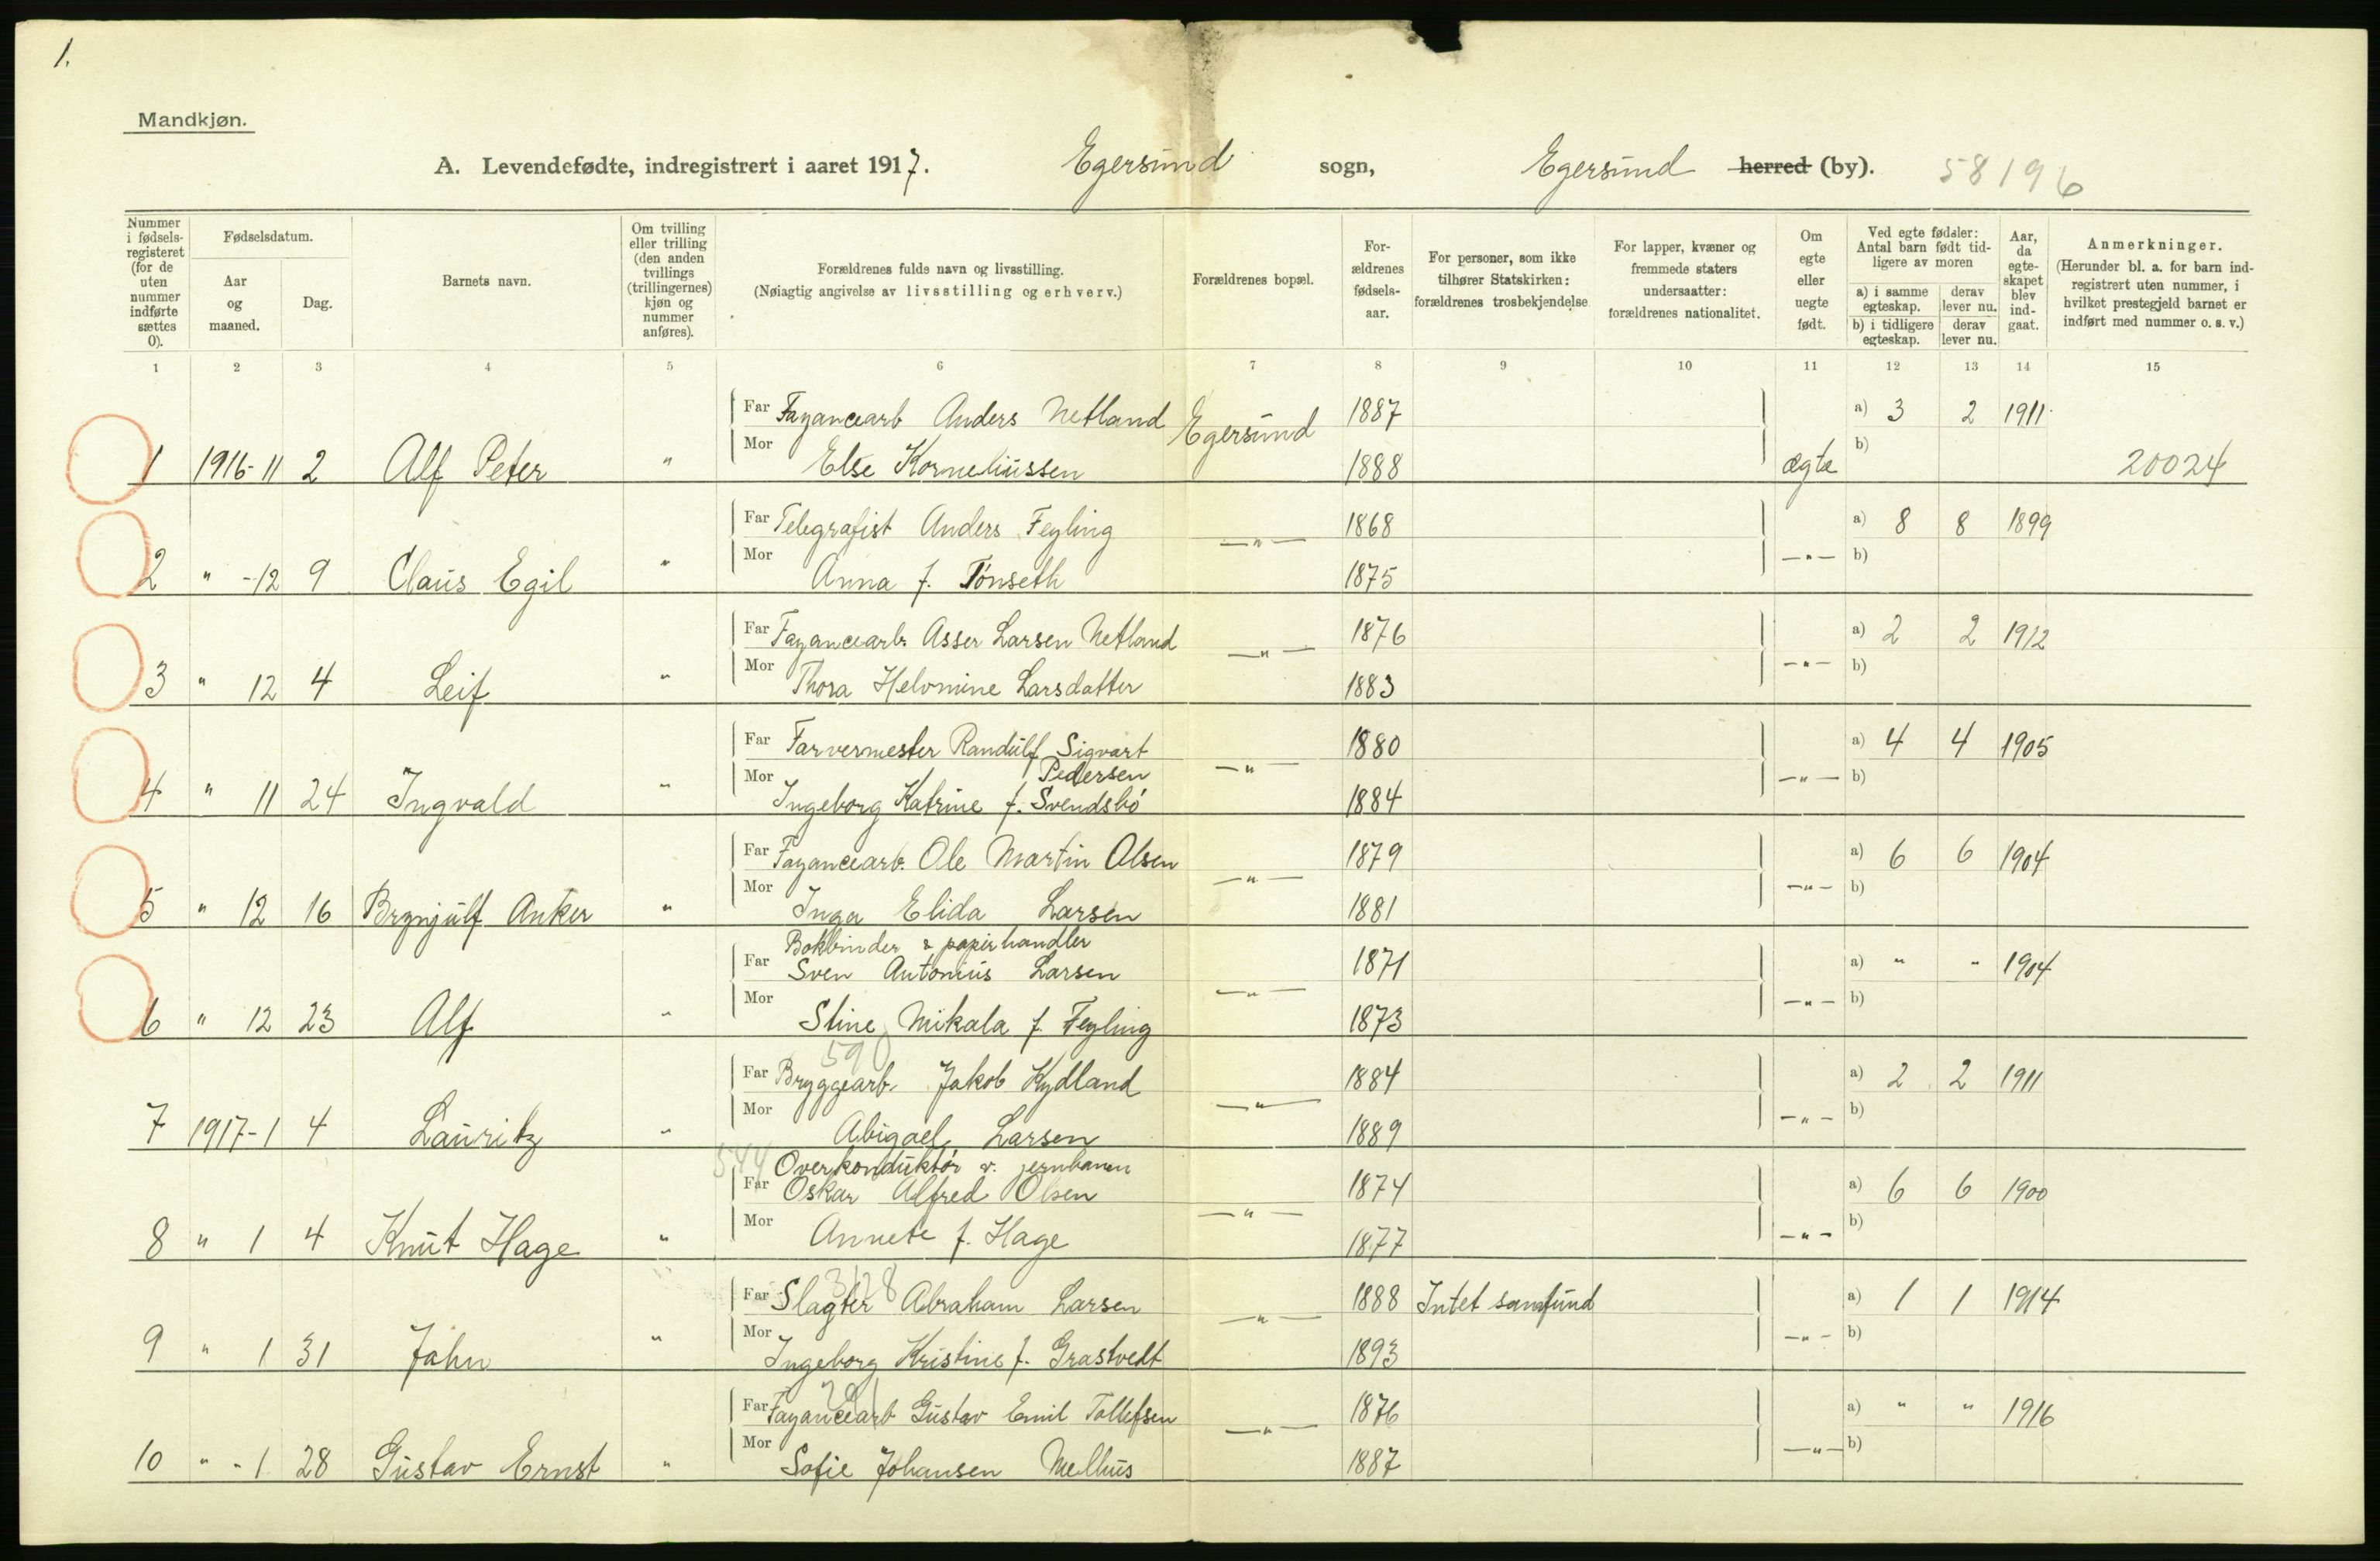 1.
Mandkjøn.
A. Levendefødte, indregistrert i aaret 1917. Egersund sogn, Egersund herred (by). 58196
Nummer i fødsels-registeret (for de uten nummer indførte sættes 0).
Fødselsdatum.
Aar og maaned.
Dag.
Barnets navn.
Om tvilling eller trilling (den anden tvillings (trillingernes) kjøn og nummer anføres).
Forældrenes fulde navn og livsstilling.
(Nøiagtig angivelse av livsstilling og erhverv.)
Forældrenes bopæl.
For-ældrenes fødsels-aar.
For personer, som ikke tilhører Statskirken: forældrenes trosbekjendelse
For lapper, kvæner og fremmede staters undersaatter: forældrenes nationalitet.
Om egte eller uegte født.
Ved egte fødsler: Antal barn født tid-ligere av moren
a) i samme egteskap. derav lever nu.
b) i tidligere egteskap. derav lever nu.
Aar, da egte-skapet blev ind-gaat.
Anmerkninger.
(Herunder bl. a. for barn ind-registrert uten nummer, i hvilket prestegjeld barnet er indført med nummer o. s. v.)
1 2 3 4 5 6 7 8 9 10 11 12 13 14 15
Far Fayancearb Anders Netland Egersund 1887 a) 3 2 1911
1 1916-11 2 Alf Peter " Mor Else Korneliussen 1888 ægte b) 20024
Far Telegrafist Anders Feyling —"— 1868 a) 8 8 1899
2 " -12 9 Claus Egil " Mor Anna f. Tönseth 1875 —"— b)
Far Fayancearb. Asser Larsen Netland —"— 1876 a) 2 2 1912
3 " 12 4 Leif " Mor Thora Helomine Larsdatter 1883 —"— b)
Far Farvermester Randulf Sigvart Pedersen —"— 1880 a) 4 4 1905
4 " 11 24 Ingvald " Mor Ingeborg Katrine f. Svendsbö 1884 —"— b)
Far Fayancearb. Ole Martin Olsen —"— 1879 a) 6 6 1904
5 " 12 16 Brynjulf Anker " Mor Inga Elida Larsen 1881 —"— b)
Bokbinder & papirhandler
Far Sven Antonius Larsen —"— 1871 a) " " 1904
6 " 12 23 Alf " Mor Stine Mikala f. Feyling 1873 —"— b)
590
Far Bryggearb. Jakob Kydland —"— 1884 a) 2 2 1911
7 1917-1 4 Lauritz " Mor Abigael Larsen 1889 —"— b)
544 Overkonduktör v. jernbanen
Far Oskar Alfred Olsen —"— 1874 a) 6 6 1900
8 " 1 4 Knut Hage " Mor Annete f. Hage 1877 —"— b)
Far Slagter Abraham Larsen —"— 1888 Intet samfund a) 1 1 1914
9 " 1 31 Jahn " Mor Ingeborg Kristine f. Grastvedt 1893 —"— b)
Far Fayancearb Gustav Emil Tollefsen —"— 1876 a) " " 1916
10 " " 1 28 Gustav Ernst " Mor Sofie Johansen Melhus 1887 —"— b)